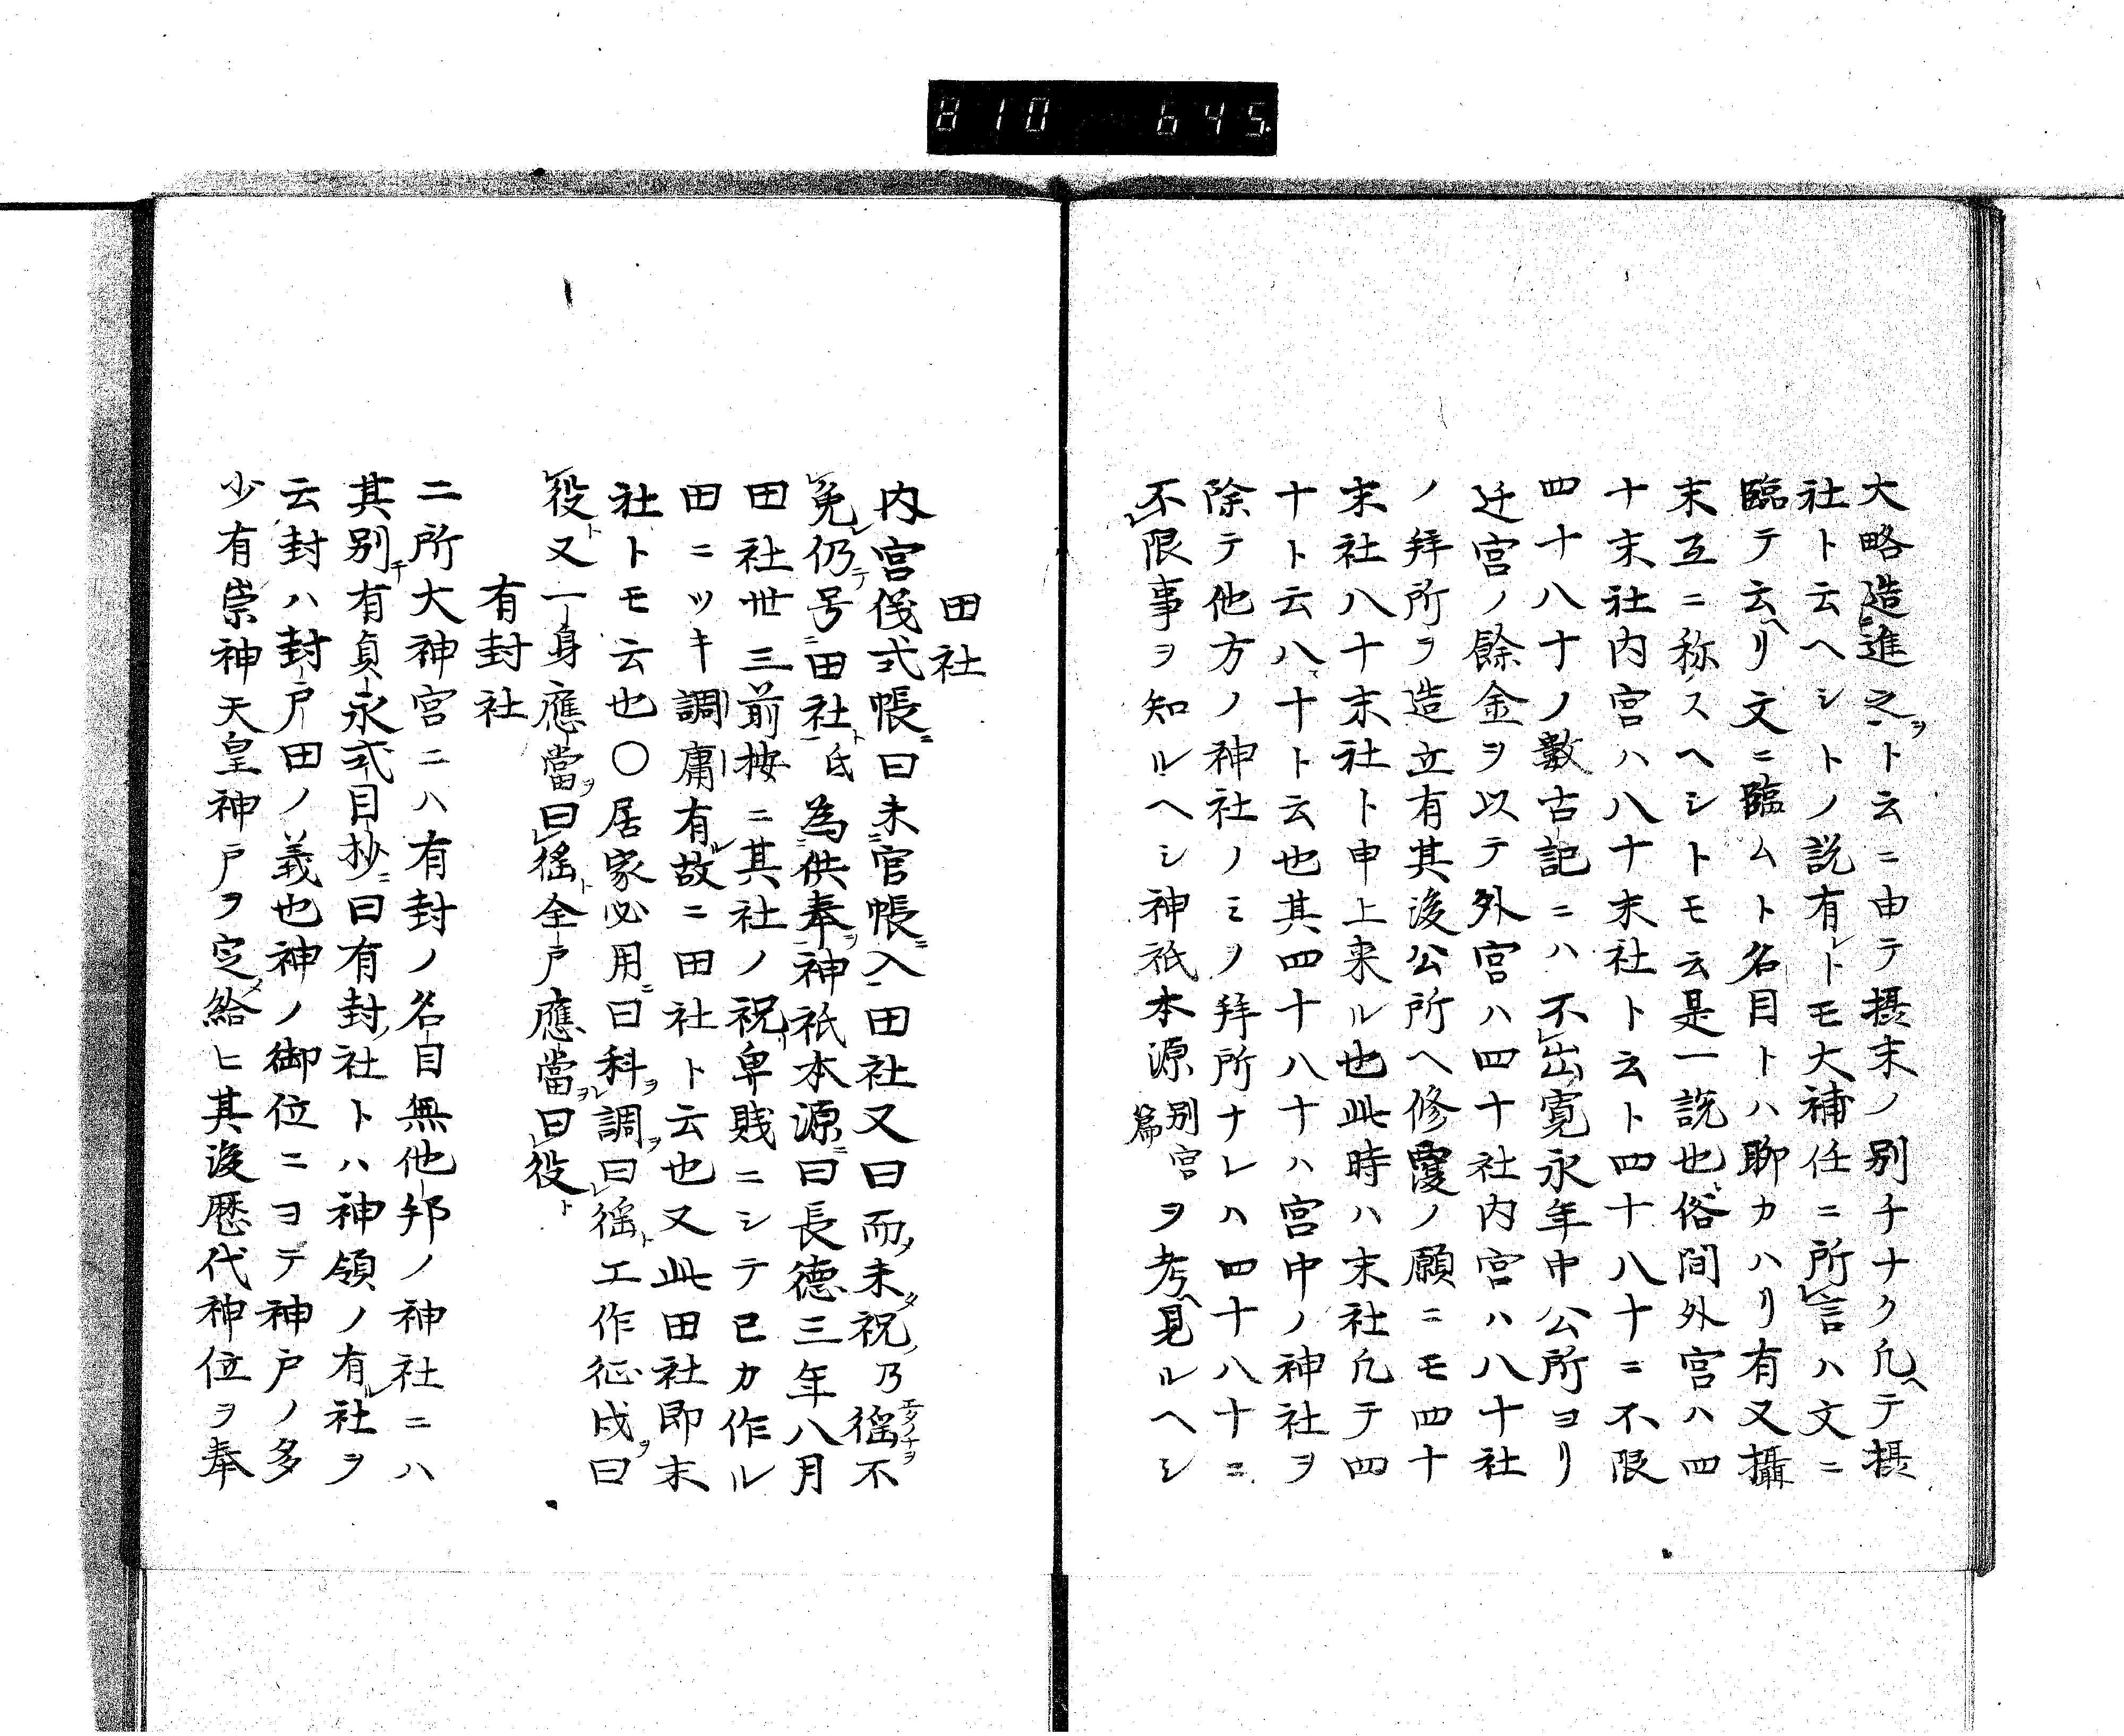 810 645
大略造進之ヲト云ニ由テ摂末ノ別チナク凡ヘテ摂
社ト云ヘシトノ説有レトモ大補任ニ所言ハ文ニ
臨テ云ヘリ文ニ臨ムト名目トハ聊カハリ有又攝
末互ニ称スヘシトモ云是一説也俗間外宮ハ四
十末社内宮ハ八十末社ト云ト四十八十ニ不限
四十八十ノ數古記ニハ不出寛永年中公所ヨリ
迁宮ノ餘金ヲ以テ外宮ハ四十社内宮ハ八十社
ノ拜所ヲ造立有其後公所ヘ修覆ノ願ニモ四十
末社八十末社ト申上来ル也此時ハ末社凡テ四
十ト云八十ト云也其四十八十ハ宮中ノ神社ヲ
除テ他方ノ神社ノミノ拜所ナレハ四十八十ニ
不限事ヲ知ルヘシ神祇本源別宮篇ヲ考ヘ見ルヘシ
田社
内宮儀式帳ニ曰未官帳ニ入田社又曰而未タ祝乃徭エタノナヲ不
免レ仍テ号ニ田社ト氐為供奉ヲ神祇本源ニ曰長德三年八月
田社丗三前按ニ其社ノ祝卑賎ニシテ已カ作ル
田ニツキ調庸有ル故ニ田社ト云也又此田社即末
社トモ云也〇居家必用ニ曰科ヲ調ヲ曰徭ト工作征戍ヲ曰
役ト又一身應當ヲ曰徭ト全戸應當ヲ曰役ト
有封社
二所大神宮ニハ有封ノ名目無他邦ノ神社ニハ
其別チ有貞永式目抄ニ曰有封社トハ神領ノ有ル社ヲ
云封ハ封戸田ノ義也神ノ御位ニヨテ神戸ノ多
少有崇神天皇神戸ヲ定メ給ヒ其後歴代神位ヲ奉